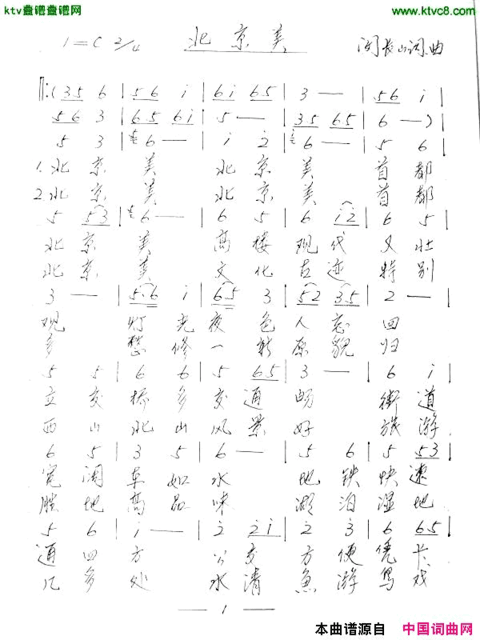 ktv虚谱虚谱网
www.ktvc8.com
1=C 2/4 北京美 闵长山词曲
‖:( 35 6 | 56 i | 6i 65 | 3 — | 56 i |
56 3 | 65 6i | 5 — | 35 65 | 6 —) |
5 3 | 6 — | i 2 | 6 — | 5 6 |
1.北京 美 北京 美 首都
2.北京 美 北京 美 首都
5 53 | 6 — | 6 5 | 6 i2 | 6 5 |
北京 美 高楼 现代 又壮
北京 美 文化 古迹 特别
3 — | 5·6 i | 65 3 | 52 35 | 2 — |
观 灯光 夜色 人忘 回
多 修一 原貌 归
5 5 | 6 6 | 5 65 | 3 — | 6 i |
立交 桥多 交通 畅 街道
西山 北山 风景 好 旅游
6 5 | 3 5 | 6 — | 5 6 | 5 53 |
宽阔 车如 水 地铁 快速
胜地 高品 味 湖泊 湿地
5 6 | i — | 2 2i | 2 3 | 6 65 |
通四 方 公交 方便 凭卡
几多 处 水清 鱼游 鸟戏
— 1 —
本曲谱源自 中国词曲网